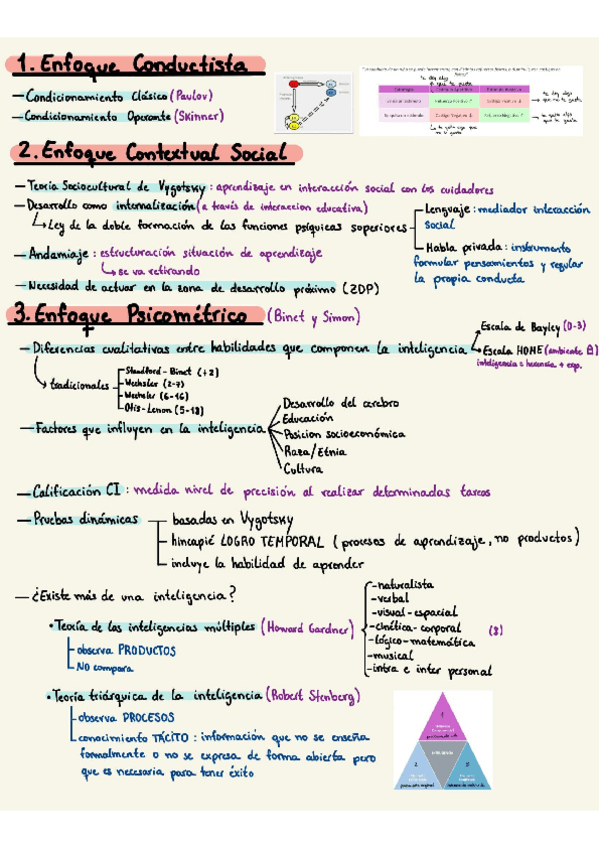 1. Enfoque Conductista
— Condicionamiento Clásico (Pavlov)
— Condicionamiento Operante (Skinner)
te doy algo
q te gusta
te doy algo
que no te gusta
te quito algo
que te gusta
La te quito algo que
no le gusta
2. Enfoque Contextual Social
— Teoría Sociocultural de Vygotsky: aprendizaje en interacción social con los cuidadores
— Desarrollo como internalización (a través de interaccion educativa)
↳ Ley de la doble formación de las funciones psíquicas superiores
Lenguaje: mediador interacción
social
Habla privada: instrumento
formular pensamientos y regular
la propia conducta
— Andamiaje: estructuración situación de aprendizaje
↳ se va retirando
— Necesidad de actuar en la zona de desarrollo próximo (ZDP)
3. Enfoque Psicométrico (Binet y Simon)
— Diferencias cualitativas entre habilidades que componen la inteligencia
Escala de Bayley (0-3)
Escala HOME (ambiente
inteligencia = herencia + exp.
tradicionales
Standford-Binet (+2)
Wechsler (2-7)
Wechsler (6-16)
Otis-Lenon (5-18)
— Factores que influyen en la inteligencia
Desarrollo del cerebro
Educación
Posicion socioeconómica
Raza/Etnia
Cultura
— Calificación CI: medida nivel de precisión al realizar determinadas tareas
— Pruebas dinámicas
basadas en Vygotsky
hincapié LOGRO TEMPORAL (procesos de aprendizaje, no productos)
incluye la habilidad de aprender
— ¿Existe más de una inteligencia?
• Teoría de las inteligencias múltiples (Howard Gardner)
observa PRODUCTOS
NO compara
-naturalista
-verbal
-visual-espacial
-cinética-corporal
-lógico-matemática
-musical
-intra e inter personal
(8)
• Teoría triárquica de la inteligencia (Robert Stenberg)
observa PROCESOS
conocimiento TÁCITO: información que no se enseña
formalmente o no se expresa de forma abierta pero
que es necesaria para tener éxito
1
2
3